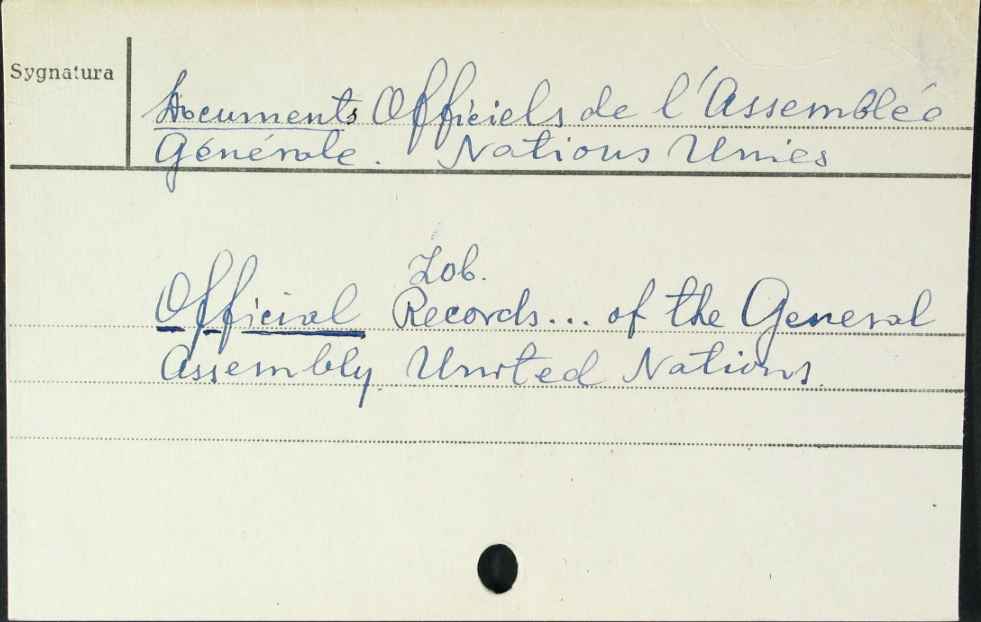 Sygnatura
Documents Officiels de l'Assemblée
Générale. Nations Unies
Zob.
Official Records... of the General
Assembly United Nations.